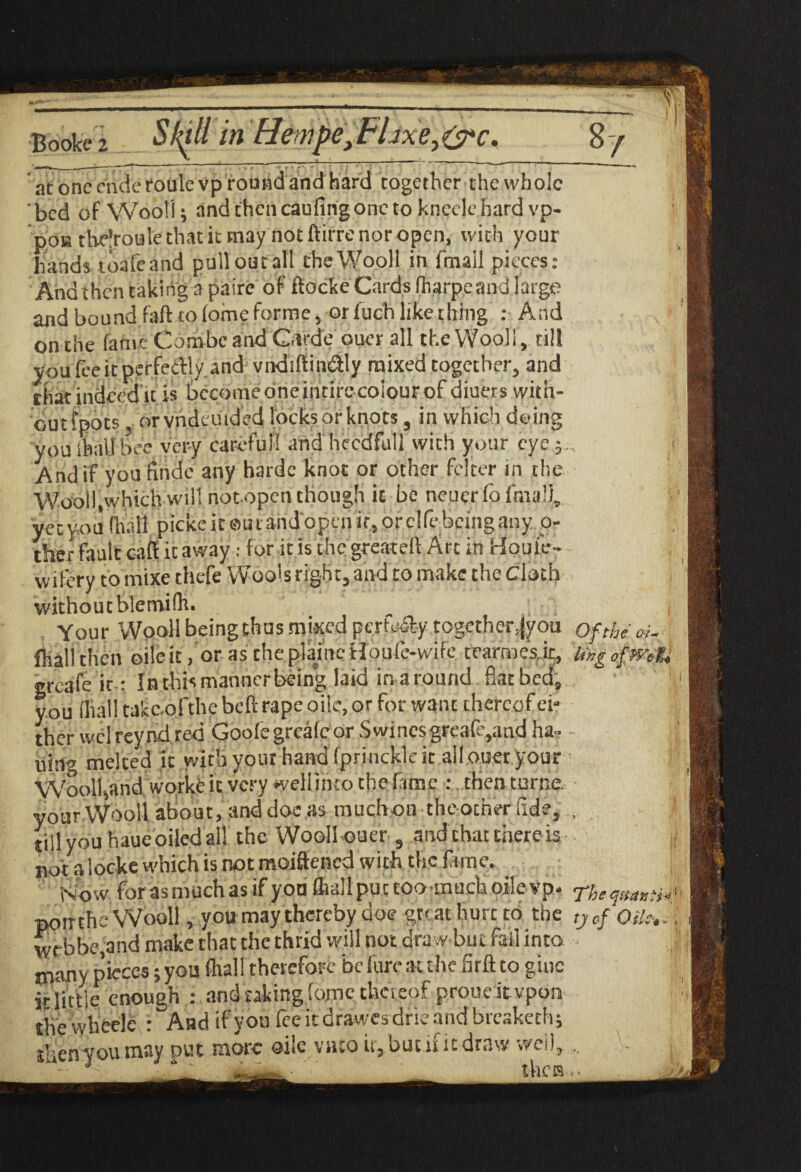 Booke 2 Skill in Hempe, Flaxe, &c. 87
at one ende roule vp round and hard together the whole
bed of Wooll; and then causing one to kneele hard vp-
pon the roule that it may not stirre nor open, with your
hands toase and pull out all the Wooll in small pieces:
And then taking a paire of stocke Cards sharpe and large
and bound fast to some forme, or such like thing : And
on the same Combe and Carde ouer all the Wooll, till
you see it perfectly and vndistinctly mixed together, and
that indeed it is become one intire colour of diuers with-
out spots, or vndeuided locks or knots, in which doing
you shall bee very carefull and heedfull with your eye;
And if you finde any harde knot or other felter in the
Wooll, which will not open though it be neuer so small,
yet you shall picke it out and open it, or else being any o-
ther fault cast it away : for it is the greatest Art in House-
wifery to mixe these Wools right, and to make the Cloth
without blemish.
Your Wooll being thus mixed perfectly together, you
Of the oi-
shall then oile it, or as the plaine House-wife tearmes it,
ling of Woll.
grease it : In this manner being laid in a round flat bed,
you shall take of the best rape oile, or for want thereof ei-
ther wel reynd red Goose grease or Swines grease, and ha-
uing melted it with your hand sprinckle it all ouer your
Wooll, and worke it very well into the same : then turne
your Wooll about, and doe as much on the other side,
till you haue oiled all the Wooll ouer, and that there is
not a locke which is not moistened with the same.
Now for as much as if you shall put too much oile vp-
The quanti-
pon the Wooll, you may thereby doe great hurt to the
ty of Oile.
webbe, and make that the thrid will not draw but fall into
many pieces; you shall therefore be sure at the first to giue
it little enough : and taking some thereof proue it vpon
the wheele : And if you see it drawes drie and breaketh;
then you may put more oile vnto it, but if it draw well,
then